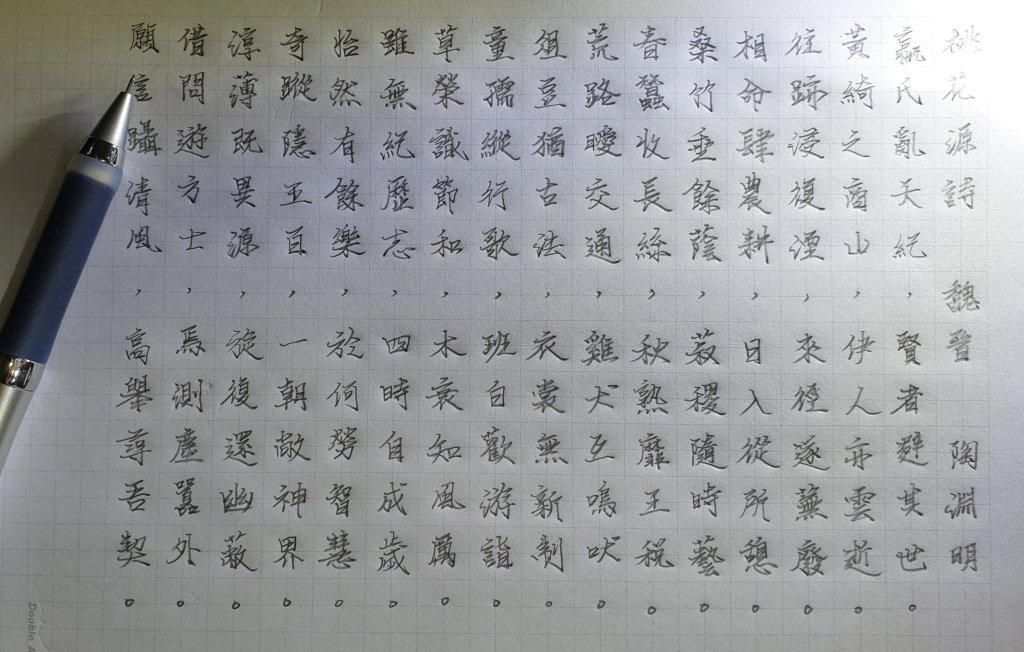 桃花源詩 魏晉 陶淵明
嬴氏亂天紀，賢者避其世。
黃綺之商山，伊人亦雲逝。
往跡浸復湮，來徑遂蕪廢。
相命肆農耕，日入從所憩。
桑竹垂餘蔭，菽稷隨時藝。
春蠶收長絲，秋熟靡王稅。
荒路曖交通，雞犬互鳴吠。
俎豆猶古法，衣裳無新制。
童孺縱行歌，班白歡游詣。
草榮識節和，木衰知風厲。
雖無紀歷志，四時自成歲。
怡然有餘樂，於何勞智慧。
奇蹤隱五百，一朝敞神界。
淳薄既異源，旋復還幽蔽。
借問遊方士，焉測塵囂外。
願信躡清風，高舉尋吾契。
Double A